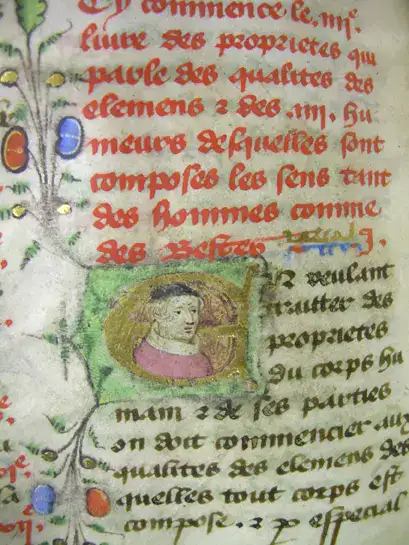 Cy commence le .iiiie.
livre des proprietes qui
parle des qualites des
elemens ⁊ des .iiii. hu
meurs desquelles sont
composes les sens tant
des hommes comme
des Bestes
En voulant
traitter des
proprietes
du corps hu
main ⁊ de ses parties
on doit commencier aux
qualites des elemens des
quelles tout corps est
compose. ⁊ especial